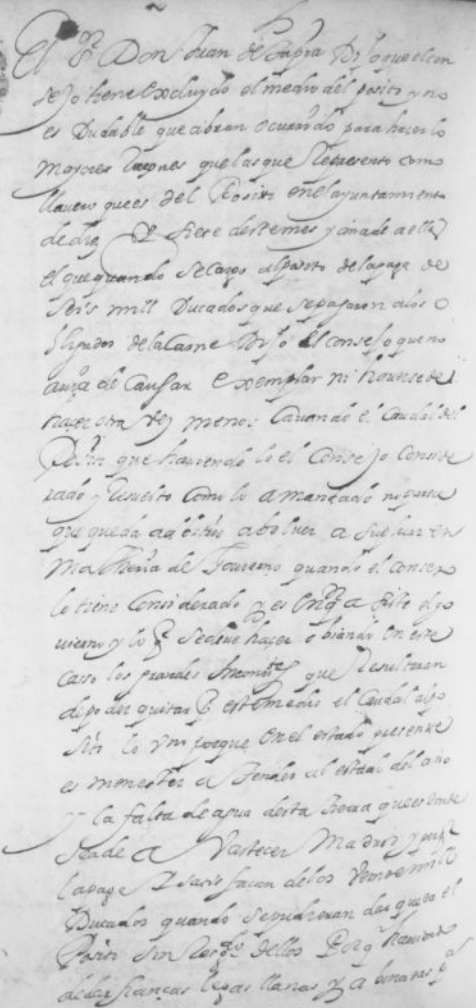 El Sr Don Juan de Tapia Dijo que el con
sejo tiene excluydo el medio del posito y no
es Dudable que abran ocurrido para hacerlo
mayores raçones que las que Represento como
llavero que es del Posito en el ayuntamiento
de diez y siete deste mes y añade a ella
el que quando se cargo al posito de la paga de
seis mill Ducados que se pagaron a los o
bligados de la Carne Dijo el consejo que no
auia de Causar exemplar ni hauerse de
hacer otra vez menos el caudal del
Posito que hauiendo lo el Consejo Conside
rado y Resuelto como lo a mandado
que queda a a boluer a en
Materia de Gouierno quando el consejo
lo tiene Considerado y es a este
uierno y lo q se deue hacer obiando en este
caso los grandes que Resultaran
de poder quitar por este medio el Caudal al po
sito lo uno porque en el estado presente
es menester atender al estado del año
y la falta de agua desta tierra que es donde
se a de a Vastecer Madrid y
la paga y satisfacion de los veinte mill
Ducados quando se pudieran dar que a el
Posito sin dellos Porq hauiendo
de dar fianças legas llanas y abonadas